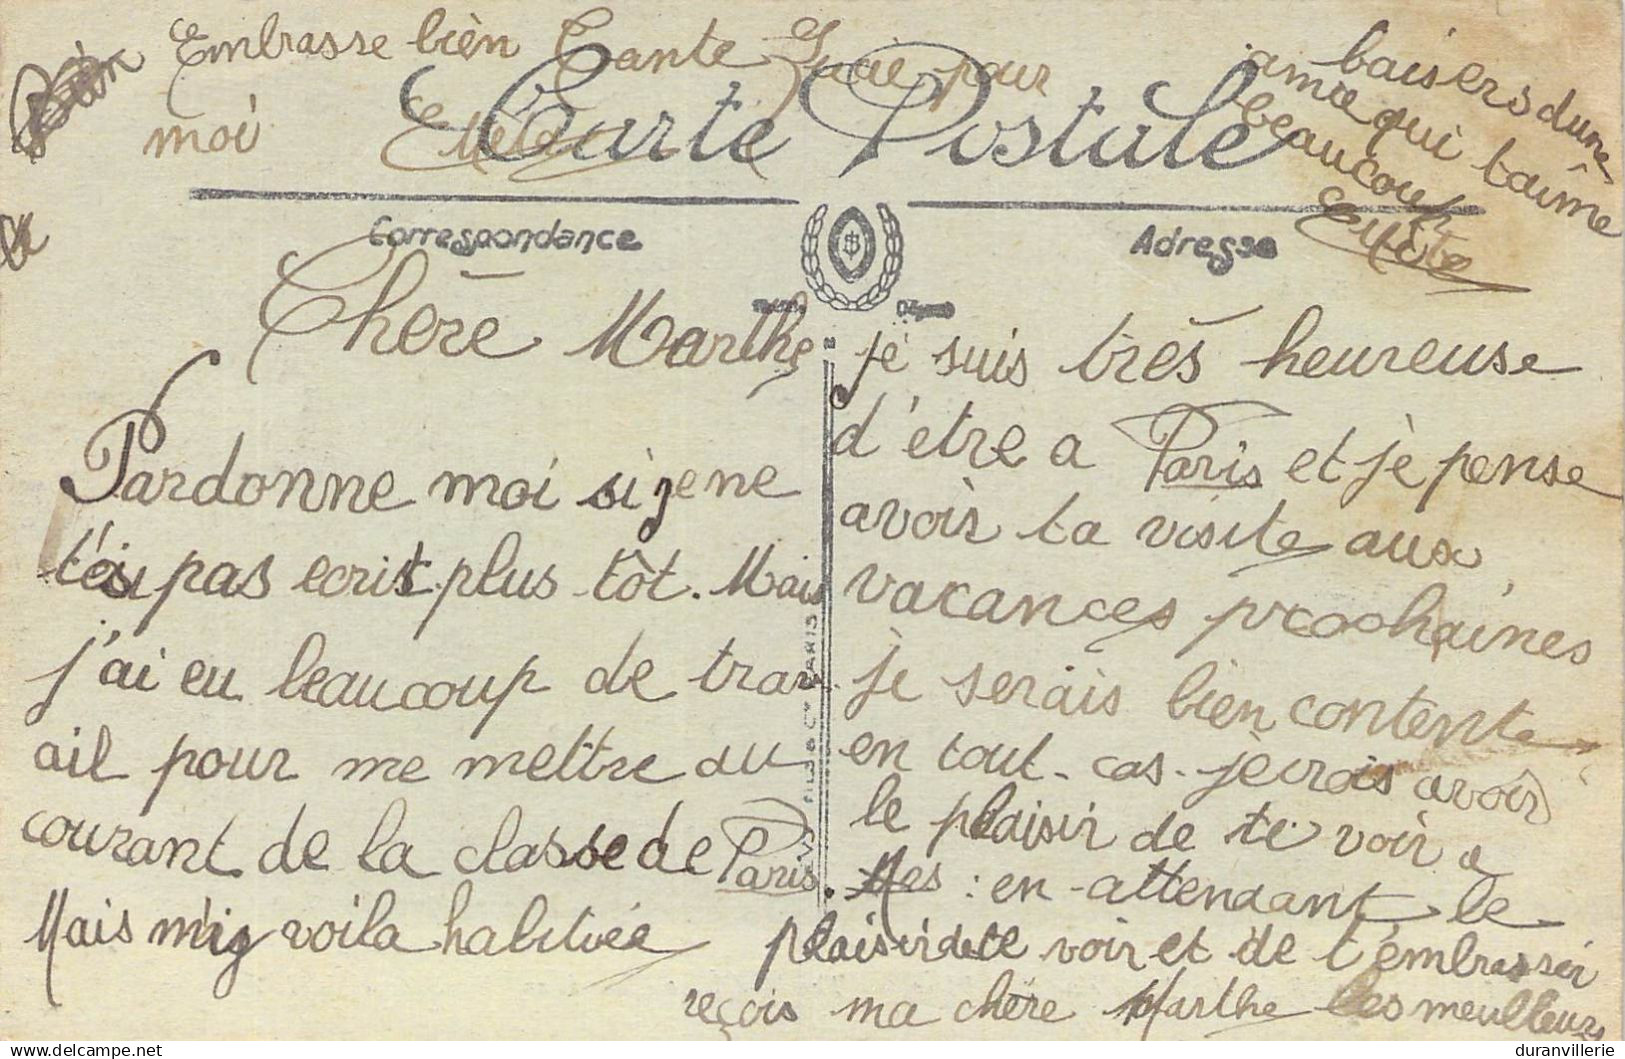 Bien Embrasse bien Tante Lucie pour
moi
Carte Postale
Correspondance
Adresse
Chère Marthe
Pardonne moi si je ne
t'ai pas ecrit plus tôt. Mais
j'ai eu beaucoup de trav
ail pour me mettre au
courant de la classe de Paris.
Mais m'y voila habituée
je suis très heureuse
d'être a Paris et je pense
avoir ta visite aux
vacances prochaines
je serais bien contente
en tout-cas-je vais avoir
le plaisir de te voir a
: en-attendant le
plaisir de te voir et de t'embrasser
reçois ma chère Marthe les meilleurs
baisers d'une
amie qui t'aime
beaucoup
duranvillerie